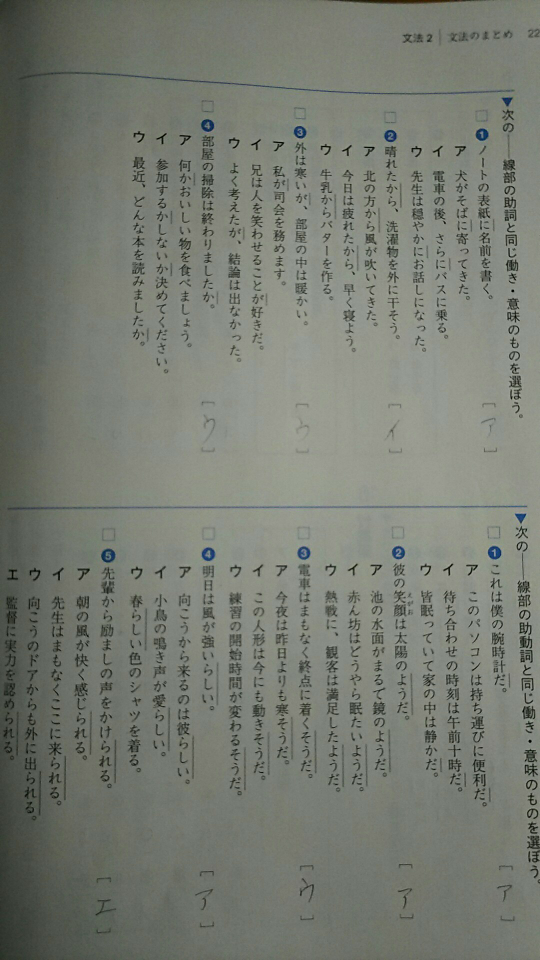 文法2 文法のまとめ 22
▼次の――線部の助詞と同じ働き・意味のものを選ぼう。
□❶ノートの表紙に名前を書く。
ア 犬がそばに寄ってきた。
イ 電車の後、さらにバスに乗る。
ウ 先生は穏やかにお話しになった。
[ア]
□❷晴れたから、洗濯物を外に干そう。
ア 北の方から風が吹いてきた。
イ 今日は疲れたから、早く寝よう。
ウ 牛乳からバターを作る。
[イ]
□❸外は寒いが、部屋の中は暖かい。
ア 私が司会を務めます。
イ 兄は人を笑わせることが好きだ。
ウ よく考えたが、結論は出なかった。
[ウ]
□❹部屋の掃除は終わりましたか。
ア 何かおいしい物を食べましょう。
イ 参加するかしないか決めてください。
ウ 最近、どんな本を読みましたか。
[ウ]
▼次の――線部の助動詞と同じ働き・意味のものを選ぼう。
□❶これは僕の腕時計だ。
ア このパソコンは持ち運びに便利だ。
イ 待ち合わせの時刻は午前十時だ。
ウ 皆眠っていて家の中は静かだ。
[ア]
□❷彼の笑顔は太陽のようだ。
えがお
ア 池の水面がまるで鏡のようだ。
イ 赤ん坊はどうやら眠たいようだ。
ウ 熱戦に、観客は満足したようだ。
[ア]
□❸電車はまもなく終点に着くそうだ。
ア 今夜は昨日よりも寒そうだ。
イ この人形は今にも動きそうだ。
ウ 練習の開始時間が変わるそうだ。
[ウ]
□❹明日は風が強いらしい。
ア 向こうから来るのは彼らしい。
イ 小鳥の鳴き声が愛らしい。
ウ 春らしい色のシャツを着る。
[ア]
□❺先輩から励ましの声をかけられる。
ア 朝の風が快く感じられる。
イ 先生はまもなくここに来られる。
ウ 向こうのドアからも外に出られる。
エ 監督に実力を認められる。
[エ]